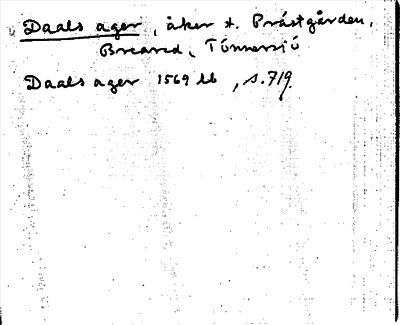 Daals ager, åker t. Prästgården,
Breared, Tönnersjö
Daals ager 1569 lb, s. 719.